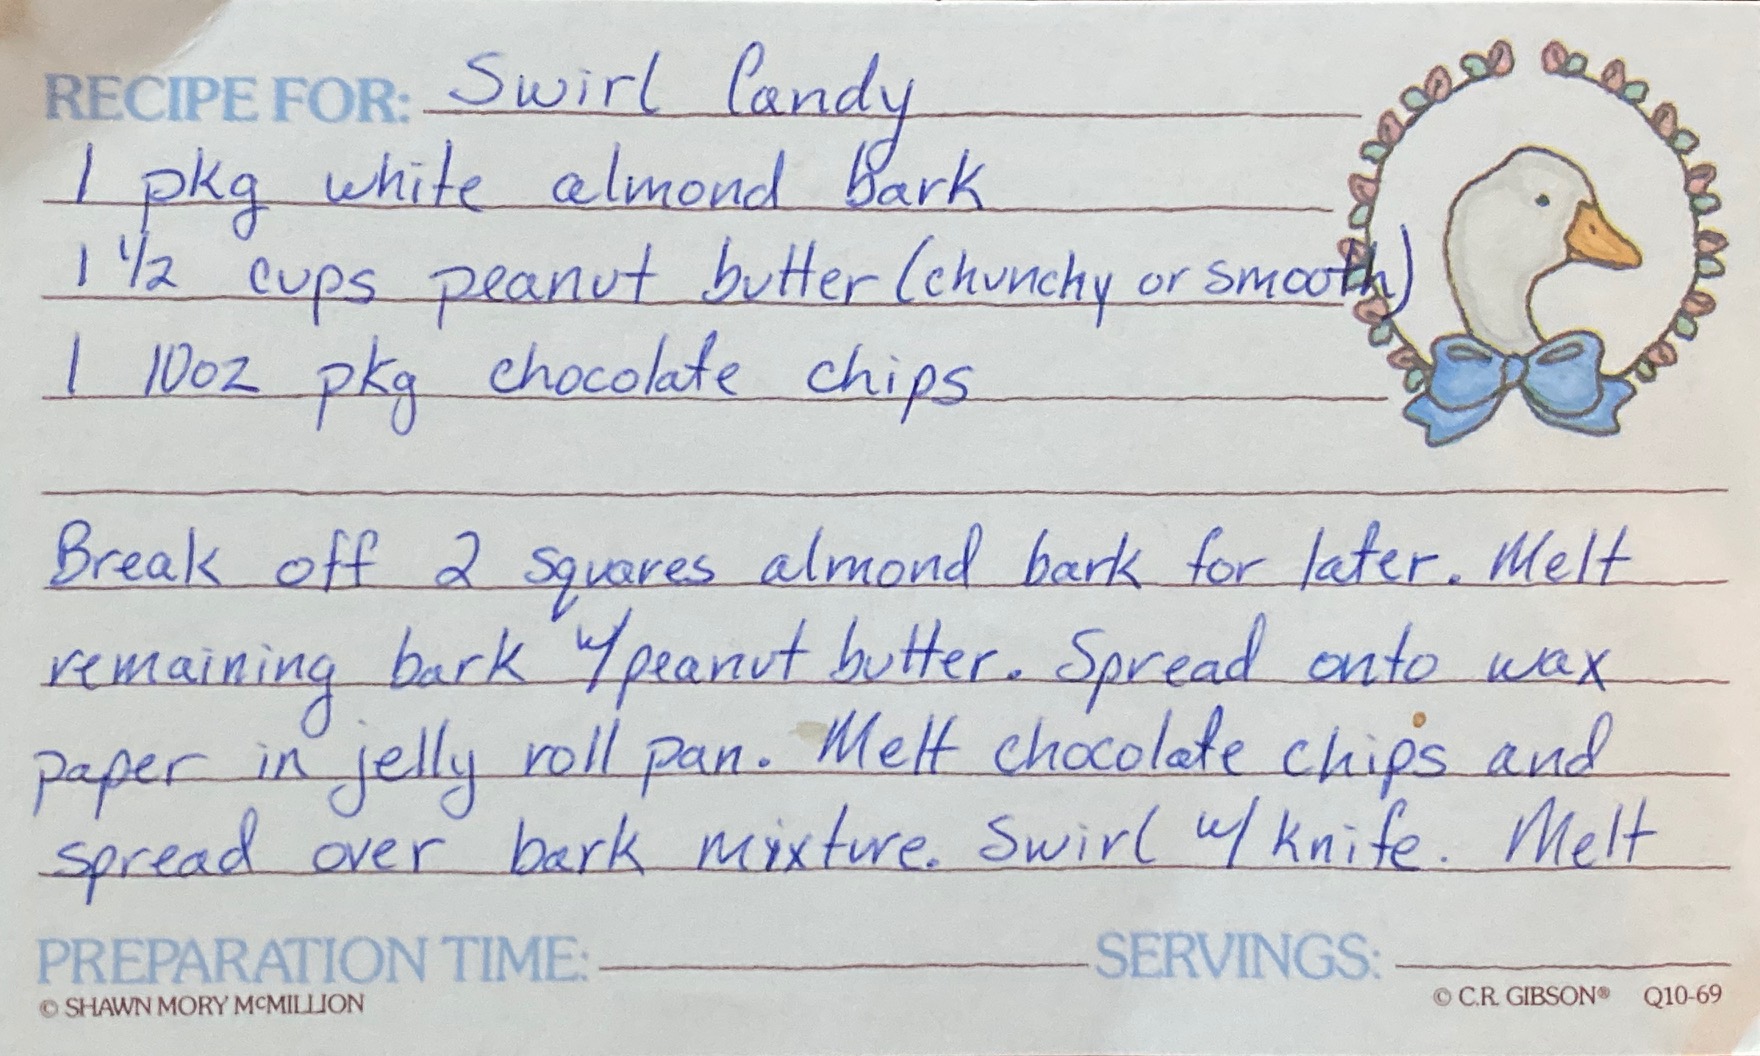 RECIPE FOR: Swirl Candy
1 pkg white almond bark
1 1/2 cups peanut butter (chunchy or smooth)
1 10oz pkg chocolate chips
Break off 2 squares almond bark for later. Melt
remaining bark w/peanut butter. Spread onto wax
paper in jelly roll pan. Melt chocolate chips and
spread over bark mixture. Swirl w/ knife. Melt
PREPARATION TIME: SERVINGS:
© SHAWN MORY McMILLION © C.R. GIBSON® Q10-69